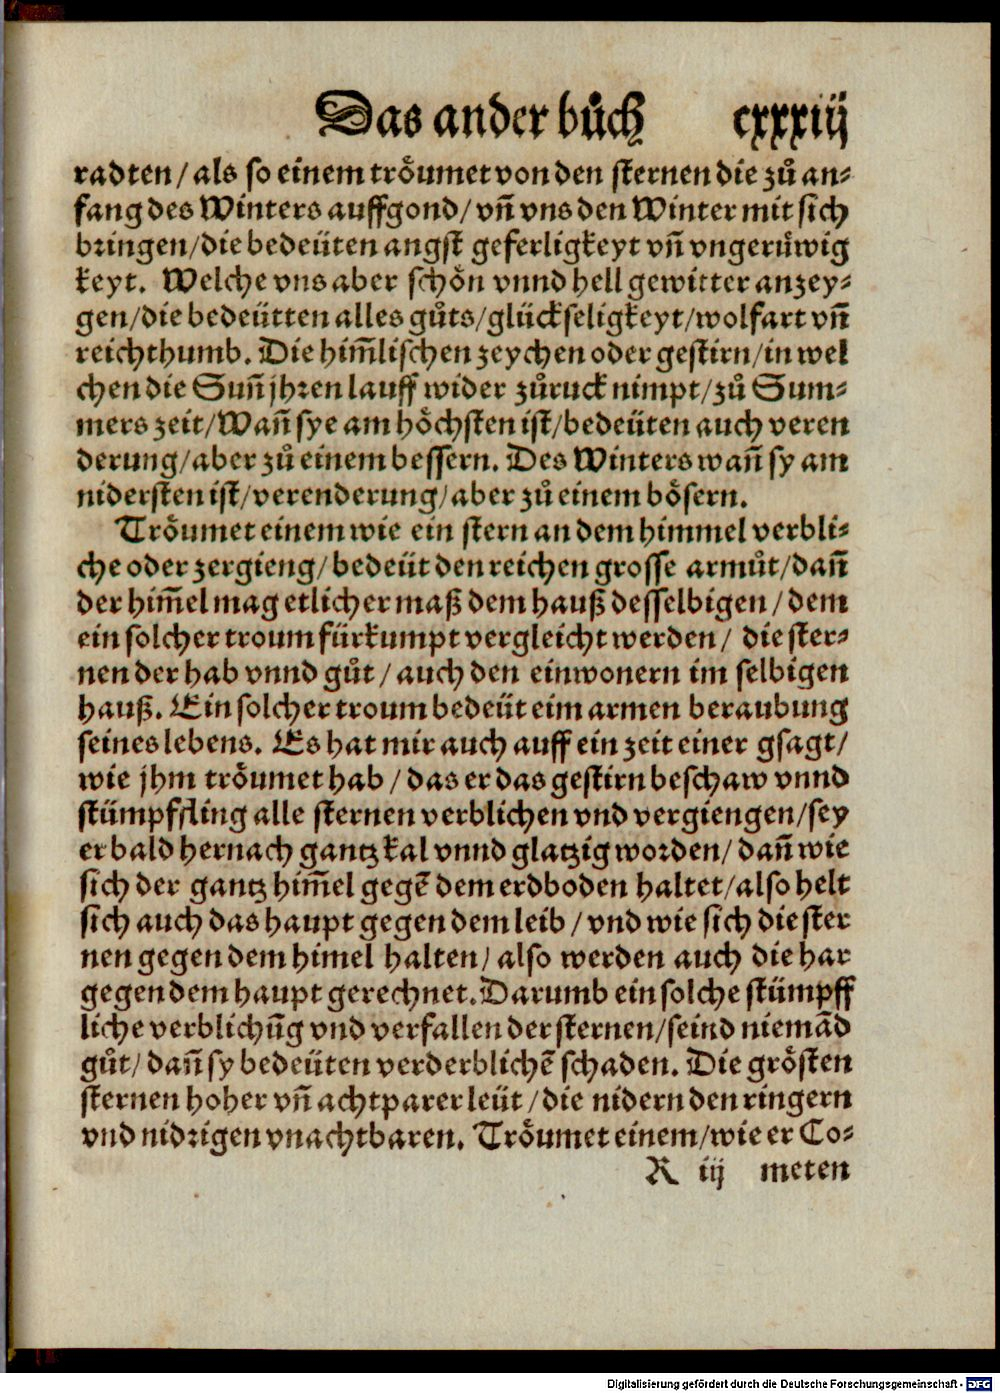 Das ander bůch cxxxiij
radten/ als so einem trôumet von den sternen die zů an⸗
fang des Winters auffgond/ vñ vns den Winter mit sich
bringen/die bedeüten angst geferligkeyt vñ vngerůwig
keyt. Welche vns aber schôn vnnd hell gewitter anzey⸗
gen/die bedeütten alles gůts/glückseligkeyt/wolfart vñ
reichthumb. Die him̃lischen zeychen oder gestirn/in wel
chen die Suñ jhren lauff wider zůruck nimpt/zů Sum⸗
mers zeit/Wañ sye am hôchsten ist/bedeüten auch veren
derung/aber zů einem bessern. Des Winters wañ sy am
nidersten ist/verenderung/aber zů einem bôsern.
Trôumet einem wie ein stern an dem himmel verbli⸗
che oder zergieng/bedeüt den reichen grosse armůt/dañ
der him̃el mag etlicher maß dem hauß desselbigen/ dem
ein solcher troum fürkumpt vergleicht werden/ die ster⸗
nen der hab vnnd gůt / auch den einwonern im selbigen
hauß. Ein solcher troum bedeüt eim armen beraubung
seines lebens. Es hat mir auch auff ein zeit einer gsagt/
wie jhm trôumet hab / das er das gestirn beschaw vnnd
stümpffling alle sternen verblichen vnd vergiengen/sey
er bald hernach gantz kal vnnd glatzig worden/ dañ wie
sich der gantz him̃el gegẽ dem erdboden haltet/also helt
sich auch das haupt gegen dem leib / vnd wie sich die ster
nen gegen dem himel halten/ also werden auch die har
gegen dem haupt gerechnet. Darumb ein solche stümpff
liche verblichũg vnd verfallen der sternen/seind niemãd
gůt/ dañ sy bedeüten verderblichẽ schaden. Die grôsten
sternen hoher vñ achtparer leüt /die nidern den ringern
vnd nidrigen vnachtbaren. Trôumet einem/wie er Co⸗
R iij meten
Digitalisierung gefördert durch die Deutsche Forschungsgemeinschaft - DFG